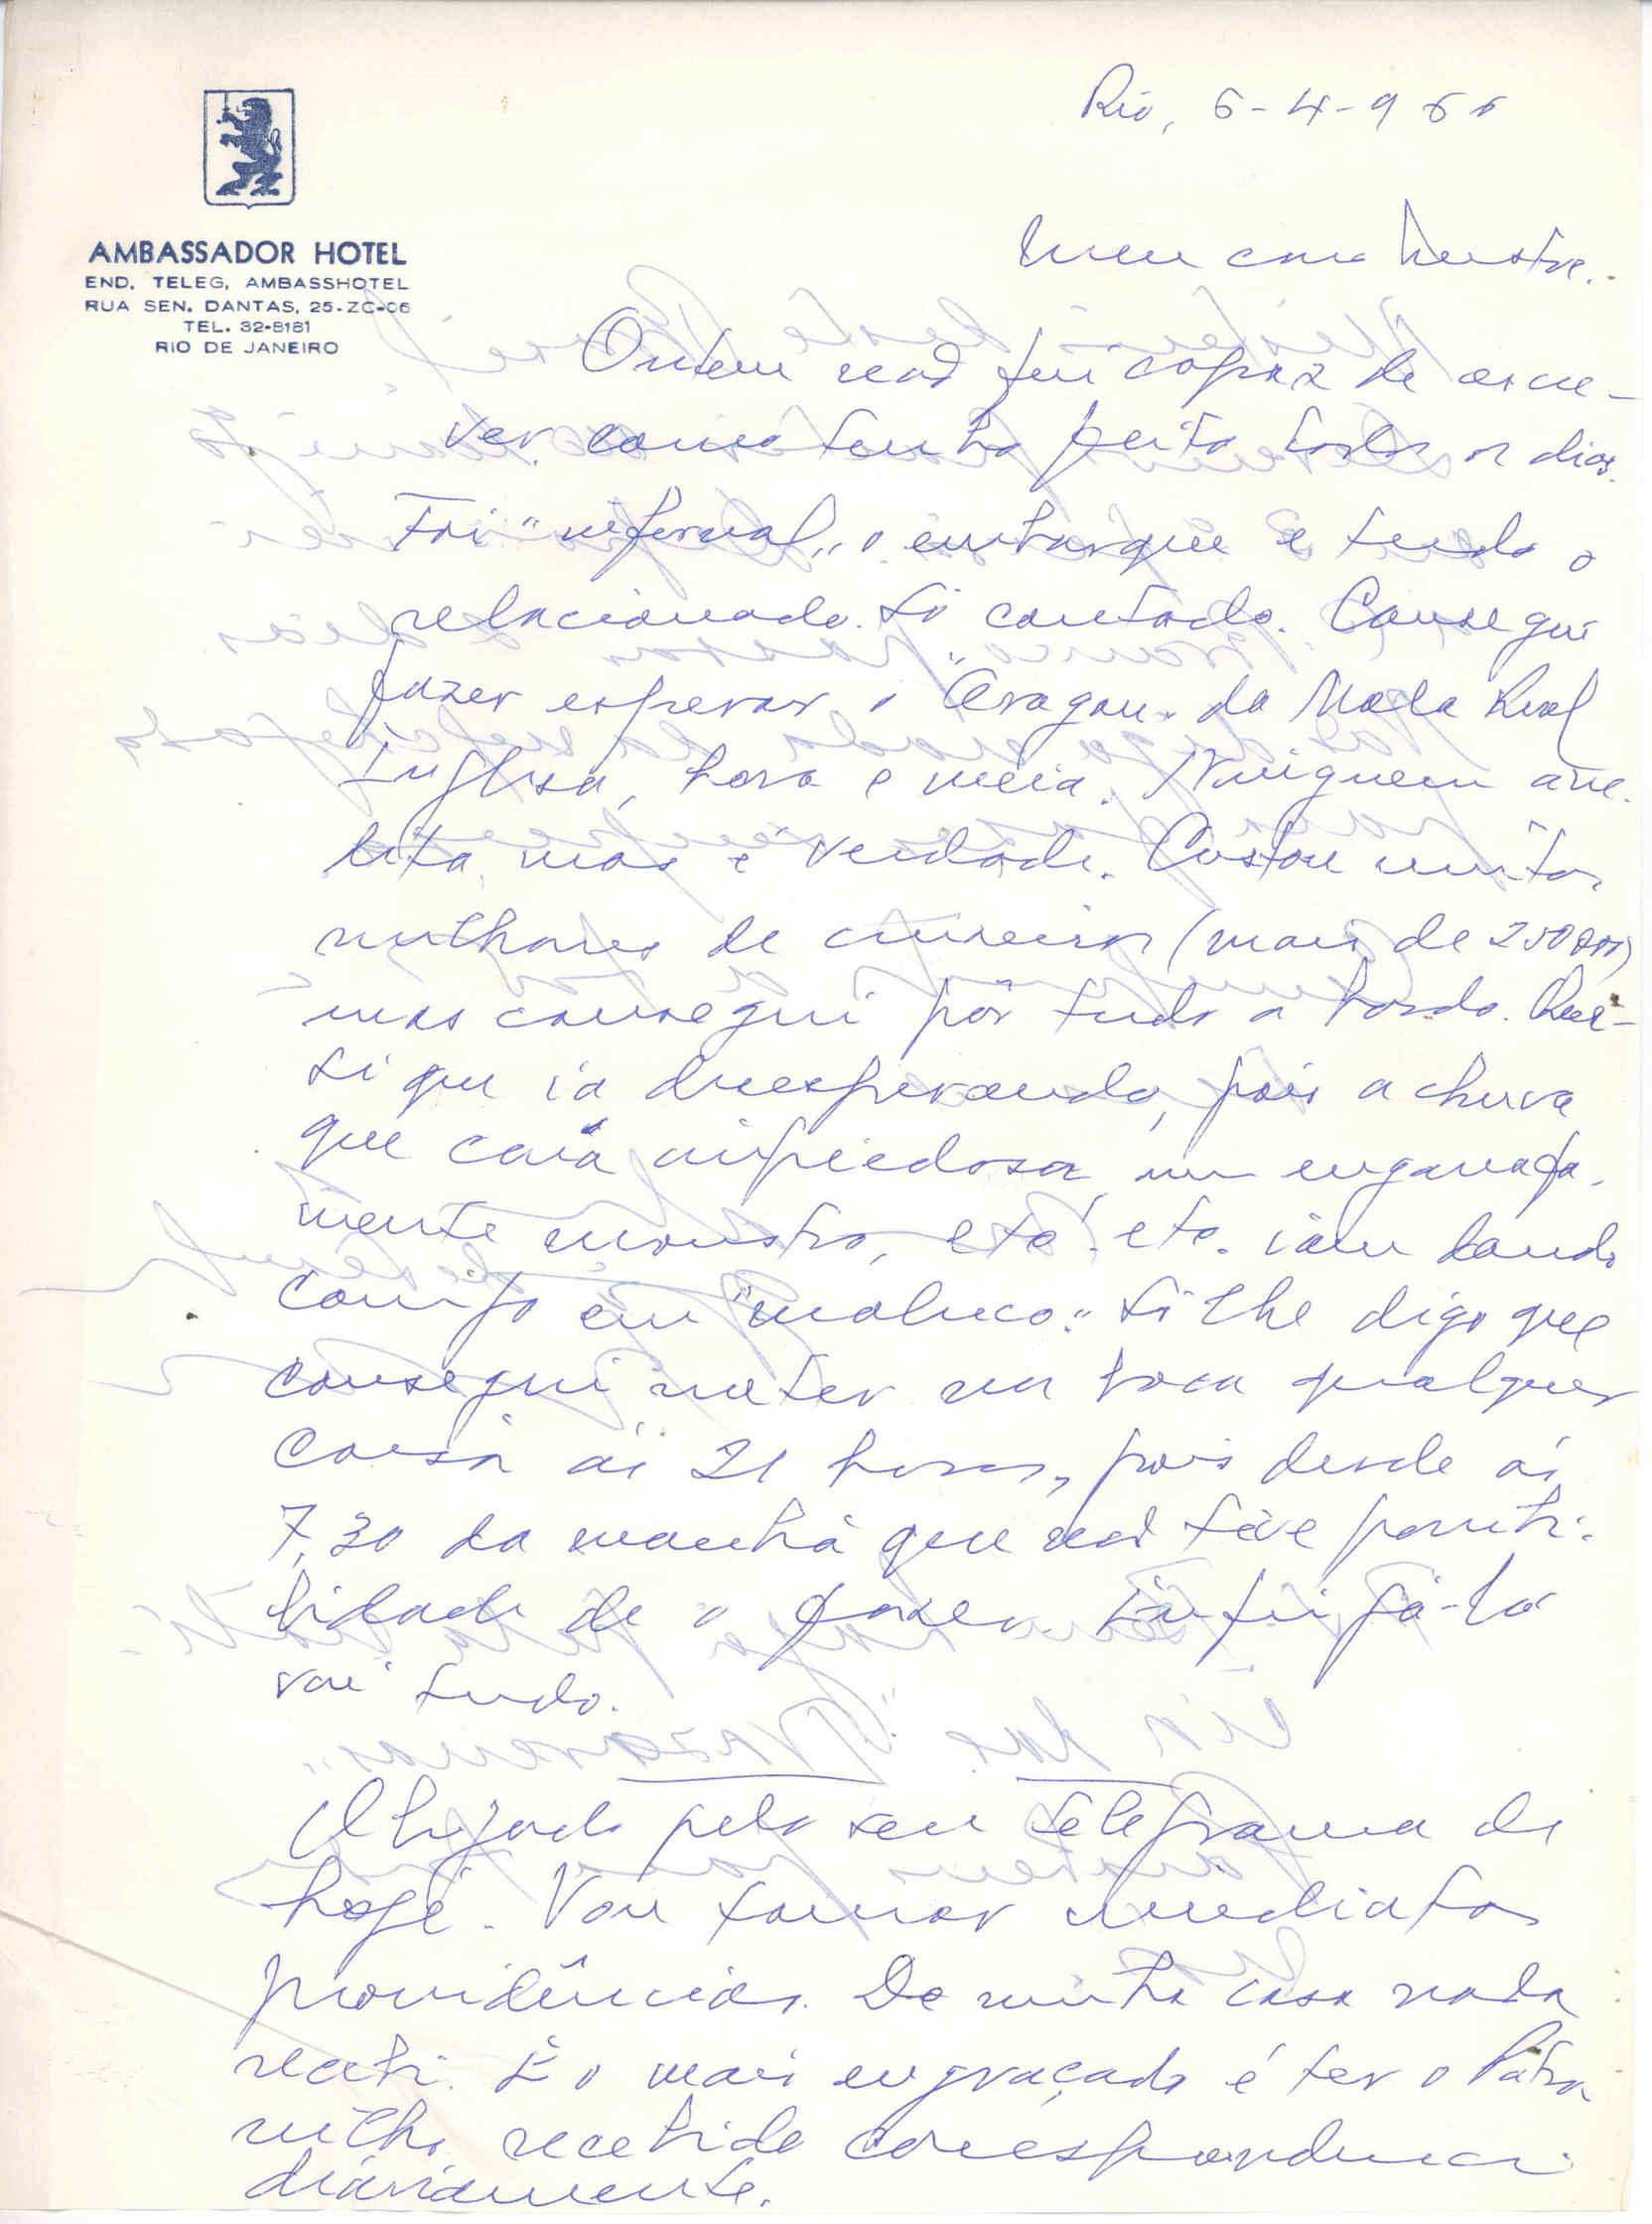 AMBASSADOR HOTEL
END. TELEG. AMBASSHOTEL
RUA SEN. DANTAS, 25-ZC-06
TEL. 32-8181
RIO DE JANEIRO
Rio, 6-4-966
Meu caro Mestre.
Ontem não fui capaz de escre-
ver como tenho feito todos os dias.
Foi "infernal" o embarque e tudo o
relacionado. Só contado. Consegui
fazer esperar o "Aragon" da Mala Real
Inglesa, hora e meia. Ninguem acre-
dita mas é verdade. Custou muitos
milhares de cruzeiros (mais de 250000)
mas consegui pôr tudo a bordo.
que ia desesperando, pois a chuva
que caía impiedosa, um engarrafa-
mento monstro, etc. etc. iam dando
comigo em "maluco". Só lhe digo que
consegui meter na boca qualquer
coisa ás 21 horas, pois desde ás
7,30 da manhã que não tive possibi-
lidade de o fazer. Enfim já lá
vai tudo.
Obrigado pelo seu telegrama de
hoje. Vou tomar imediatas
providências. De minha casa nada
recebi. E o mais engraçado é ter o Patro-
nilho recebido correspondencia
diáriamente.